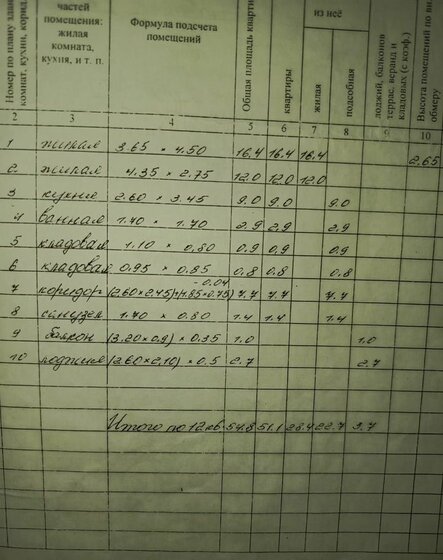 Номер по плану здан
комнат, кухни, корид
частей
помещения:
жилая
комната,
кухня, и т. п.
Формула подсчета
помещений
Общая площадь кварти
квартиры
из неё
жилая
подсобная
лоджий, балконов
террас, веранд и
кладовых (с коэф.)
Высота помещений по вн.
обмеру
2 3 4 5 6 7 8 9 10
1 жилая 3.65 × 4.50 16.4 16.4 16.4 2.65
2 жилая 4.35 × 2.75 12.0 12.0 12.0
3 кухня 2.60 × 3.45 9.0 9.0 9.0
4 ванная 1.70 × 1.70 2.9 2.9 2.9
5 кладовая 1.10 × 0.80 0.9 0.9 0.9
6 кладовая 0.95 × 0.85 0.8 0.8 0.8
-0.04
7 коридор (2.60×2.45)+(1.85×0.75) 7.7 7.7 7.7
8 санузел 1.70 × 0.80 1.4 1.4 1.4
9 балкон (3.20×0.9) × 0.35 1.0 1.0
10 лоджия (2.60×2.10) × 0.5 2.7 2.7
Итого по 12 кв. 54.8 51.1 28.4 22.7 3.7